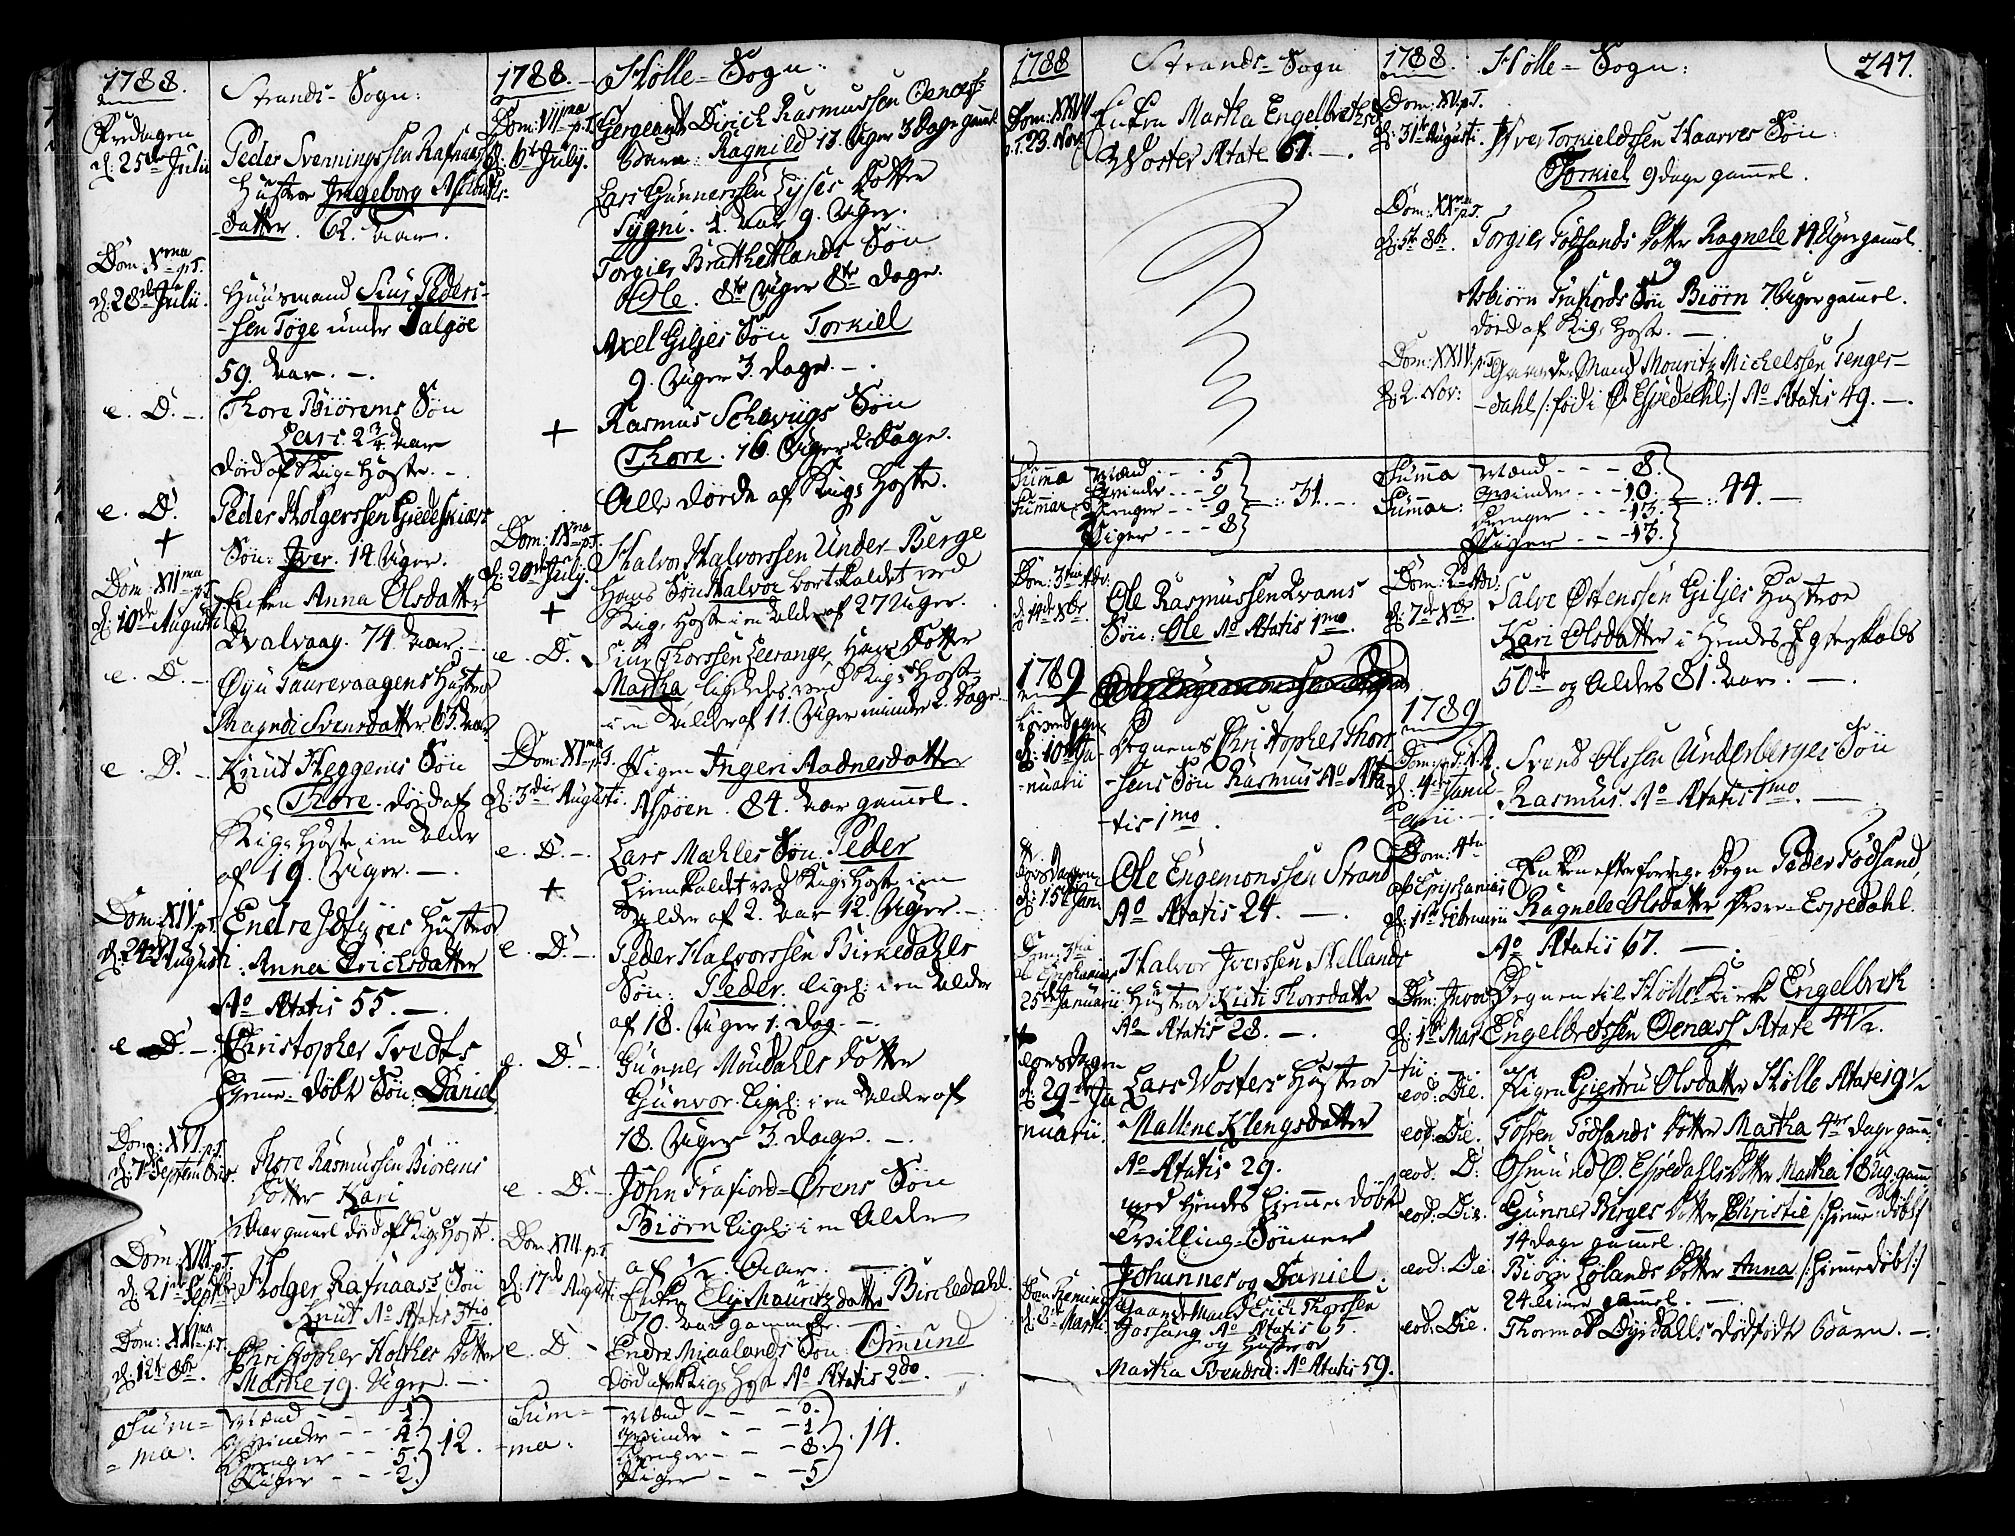 1788.
Strands-Sogn:
Fredagen
d: 25de Julii
Peder Svenningssen Rafnaas
Hustroe Ingeborg Asbiørns-
datter. 62. Aar.
Dom: Xma p.T.
d: 28de Julii.
Huusmand Siur Peders-
-sen Tøge under Talgøe
59. Aar. -.
e. D. -.
Thore Biørems Søn
Lars. 2 3/4 Aar
død af Kig-Hoste. -
e. D.
+
Peder Holgerssen Giedeskiærs
Søn: Iver. 14 Uger.
Dom: XIIma p.T.
d: 10de Augusti
Enken Anna Olsdatter
Qvalvaag. 74. Aar. -
e. D. -.
Øyu Taurevaagens Hustroe
Magndi Svensdatter 63. Aar
e. D. -.
Knud Heggems Søn
Thore. død af
Kig-Hoste i en Alder
af 19. Uger. -.
Dom: XIV. p.T.
d: 24de Augusti
Endre Idsøes Hustroe
Anna Erichsdatter
Ao Ætatis 55. -.
e. D. -.
Christopher Tvedts
Hiemme-døbt Søn: Daniel
Dom: XVI. p.T.
d: 7de Septembris.
Thore Rasmussen Biørems
Dotter Kari
1 Aar gammel død af Kig-Hoste.
Dom: XIIX. p.T.
d: 21de Septbr
Holger Rafnaas's Søn
Knut Ao Ætatis 3tio
Dom: XXIma p.T.
d: 12te 8br.
Christopher Holthes Dotter
Marthe 19. Uger. -.
Sum=
=ma:
Mænd - - - 1.
Qvinder - - - 4.
Drenger - - - 5.
Piger - - - 2.
12.
1788.
Hølle-Sogn:
Dom: VIIma p.T.
d: 6te Julij.
Sergeant Dirich Rasmussen Oenes's
Barn: Ragnild 13. Uger 3 Dage gammel
Lars Gunnerssen Lyses Dotter
Sygni. 1. Aar 9. Uger.
Torgier Brathetlands Søn
Ole. 8te Uger 8te Dage.
Axel Giljes Søn Torkiel
9. Uger 3. Dage. -.
+
Rasmus Schaviigs Søn
Thore. 16. Uger 2 Dage.
Alle døde af Kigs Hoste.
Dom: IXma p.T.
d: 20de Julij.
+
Halvor Halvorssen Under-Berge
Hans Søn Halvor bortkaldet ved
Kigs Hoste i en Alder af 27 Uger.
e. D.
Siur Thorssen Leerange, Hans Dotter
Martha ligeledes ved Kigs Hoste
i en Alder af 11. Uger minder 2. Dage
Dom: XIma p.T.
d: 3die Augusti.
Pigen Ingeri Aadnesdatter
Aspøen. 84. Aar gammel.
e. D. -.
+
Lars Mæhles Søn. Peder
hiemkaldet ved Kigs Hoste i en
Alder af 2. Aar 12. Uger. -.
e. D. -
Peder Halvorssen Birkedahls
Søn: Peder. ligel: i en Alder
af 18. Uger 1. Dag. -.
e. D. -.
Gunner Moudahls Dotter
Gunvor ligel: i en Alder af
18. Uger 3. Dage. -.
e. D. -.
John Frafiord-Ørens Søn
Biørn ligel: i en Alder
af 1/2 Aar. -
Dom: XIII. p.T.
d: 17de Augusti
Enken Elj Mauritzdatter Birchedahl.
70. Aar gammel. -
e. D. -
Endre Miaalands Søn: Omund
død af Kigs Hoste Ao Ætatis 2do.
Sum=
-ma:
Mænd - - - 0.
Qvinder - - - 1.
Drenger - - - 8.
Piger - - - 5.
14.
1788
Strands-Sogn
Dom: XXVII
p.T. 23. Nov.
Enken Martha Engelbrethsd:
Woster Ætate 67. -.
Summa
Summar:
Mænd - - - 5
Qvinder - - - 9
Drenger - - - 9
Piger - - - 8
31. -
Dom: 3tia Adv.
d: 14de Xbr.
Ole Rasmussen Kvams
Søn: Ole Ao Ætatis 1mo.
1789
Løverdagen
d: 10de Ja-
-nuarii
Degnens Christopher Thors-
-sens Søn Rasmus Ao Æta-
-tis 1mo.
Torsdagen
d: 15de Jan.
Ole Engemonssen Strand
Ao Ætatis 24. -.
Dom: 3tia
p. Epiphanias
25de Januarii
Halvor Iverssen Hellands
Hustroe Kisti Thorsdatter
Ao Ætatis 28. -.
Torsdagen
d: 29de Ja-
nuarii.
Lars Wosters Hustroe
Mallene Klengsdatter
Ao Ætatis 29.
med Hendes hiemme døbte
Tvilling-Sønner
Johannes og Daniel.
Dom: Reminis
d: 8de Martii
Gaardmand Erich Thorssen
Gossang Ao Ætatis 65.
og Hustroe
Martha Svendsd: Ao Ætatis 59.
1788.
Hølle-Sogn:
247.
Dom: XV. p.T.
d: 31te Augusti.
Iver Torkieldssen Haavres Søn:
Torkiel 9 dage gammel.
Dom: XXma p.T.
d: 5te 8br.
Torgier Tødsands Dotter Ragnele 14 Uger gammel.
og
Asbiørn Frafiords Søn Biørn 7 Uger gammel.
Død af Kigs Hoste. -
Dom: XXIV. p.T.
d: 2. Nov:
Gaarde-Mand Mouritz Michelssen Tenges-
-dahl /: født i Ø. Espedahl:/ Ao Ætatis 49. -.
Summa
Summar:
Mænd - - - 8.
Qvinder - - - 10.
Drenger - - - 13.
Piger - - - 13.
44. -
Dom: 2da Adv.
d: 7de Xbr.
Salve Østenssen Giljes Hustroe
Kari Olsdatter i Hendes Egteskabs
50de og Alders 81. Aar. -.
1789
d: 4de Janu-
-arii. -
Svend Olssen Underberges Søn
Rasmus. Ao Ætatis 1mo. -
Dom: 4ta
p. Epiphanias
d: 1ste Februarii
Enken efter forrige Degn Peder Tødsand,
Ragnele Olsdatter Øvre-Espedahl.
Ao Ætatis 67. -.
Dom: Invoc:
d: 1ste Mar-
tii.
Degnen til Hølle Kirke Engelbreht
Engelbretssen Oenes's Ætate 44 1/2.
eod: Die.
Pigen Giertru Olsdatter Hølle Ætate 19 1/2
eod: Die.
Tosten Tødsands Dotter Martha 4re dage gam:
eod. D:
Osmund Ø. Espedahls Dotter Martha 18 Ug. gamml
eod: Die.
Gunner Berges Dotter Christie /: hiemme-døbt:/
14 dage gammel.
eod: Die
Børge Lølands Dotter Anna /: hiemmedøbt:/
24 timer gammel. -.
eod: Die.
Thormod Dyrdalls dødfødt Barn. -.